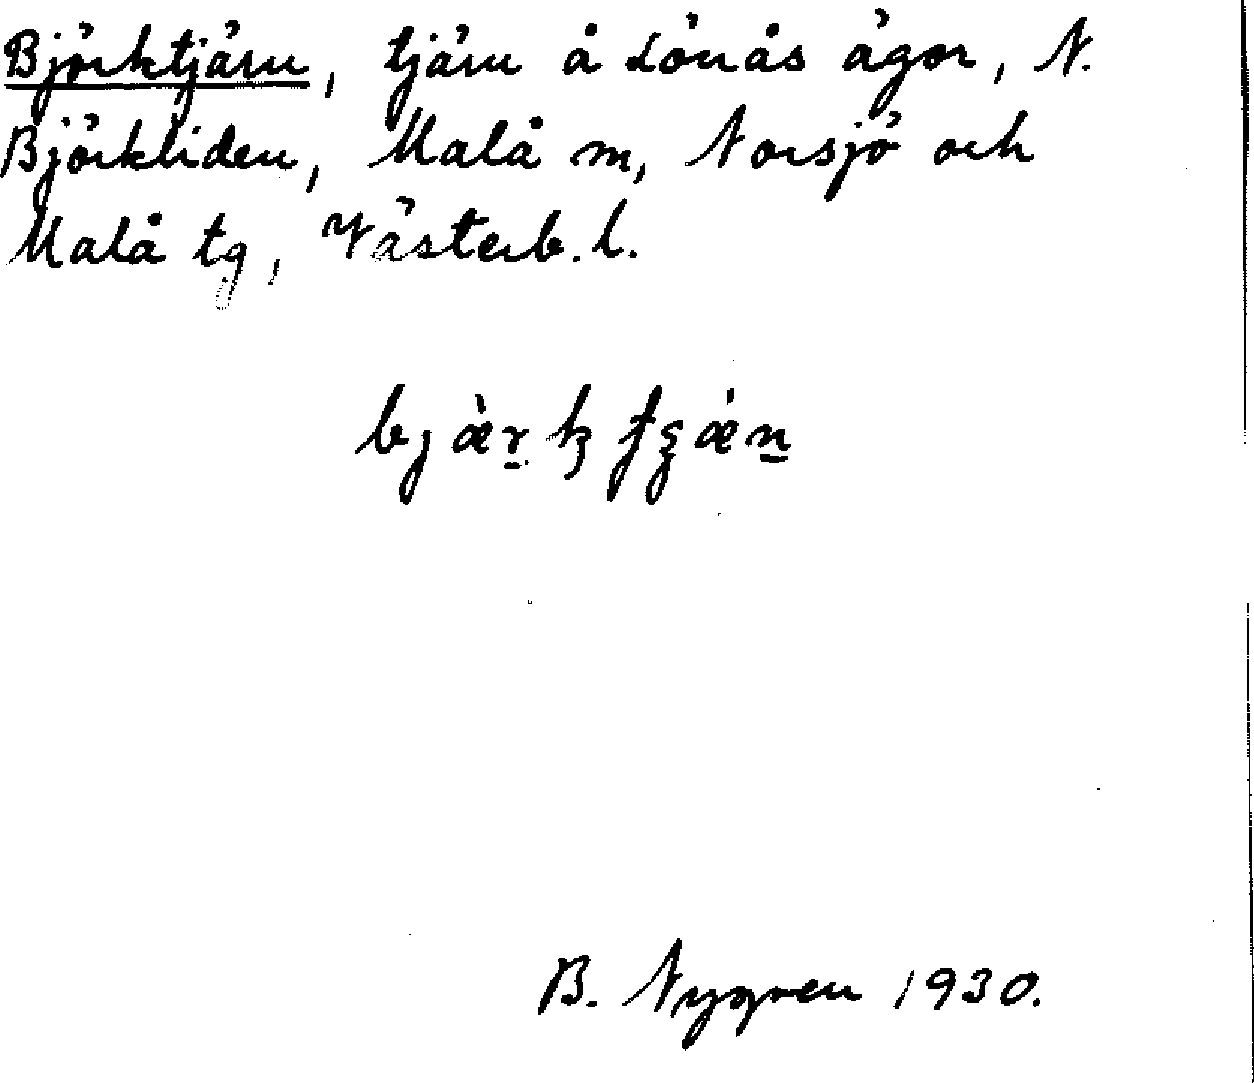 Björktjärn, tjärn å Lönås ägor, N.
Björkliden, Malå m, Norsjö och
Malå tg, Västerb. l.
bjæ̀r̲ꝁ ʈʂǽn̲
B. Nygren 1930.